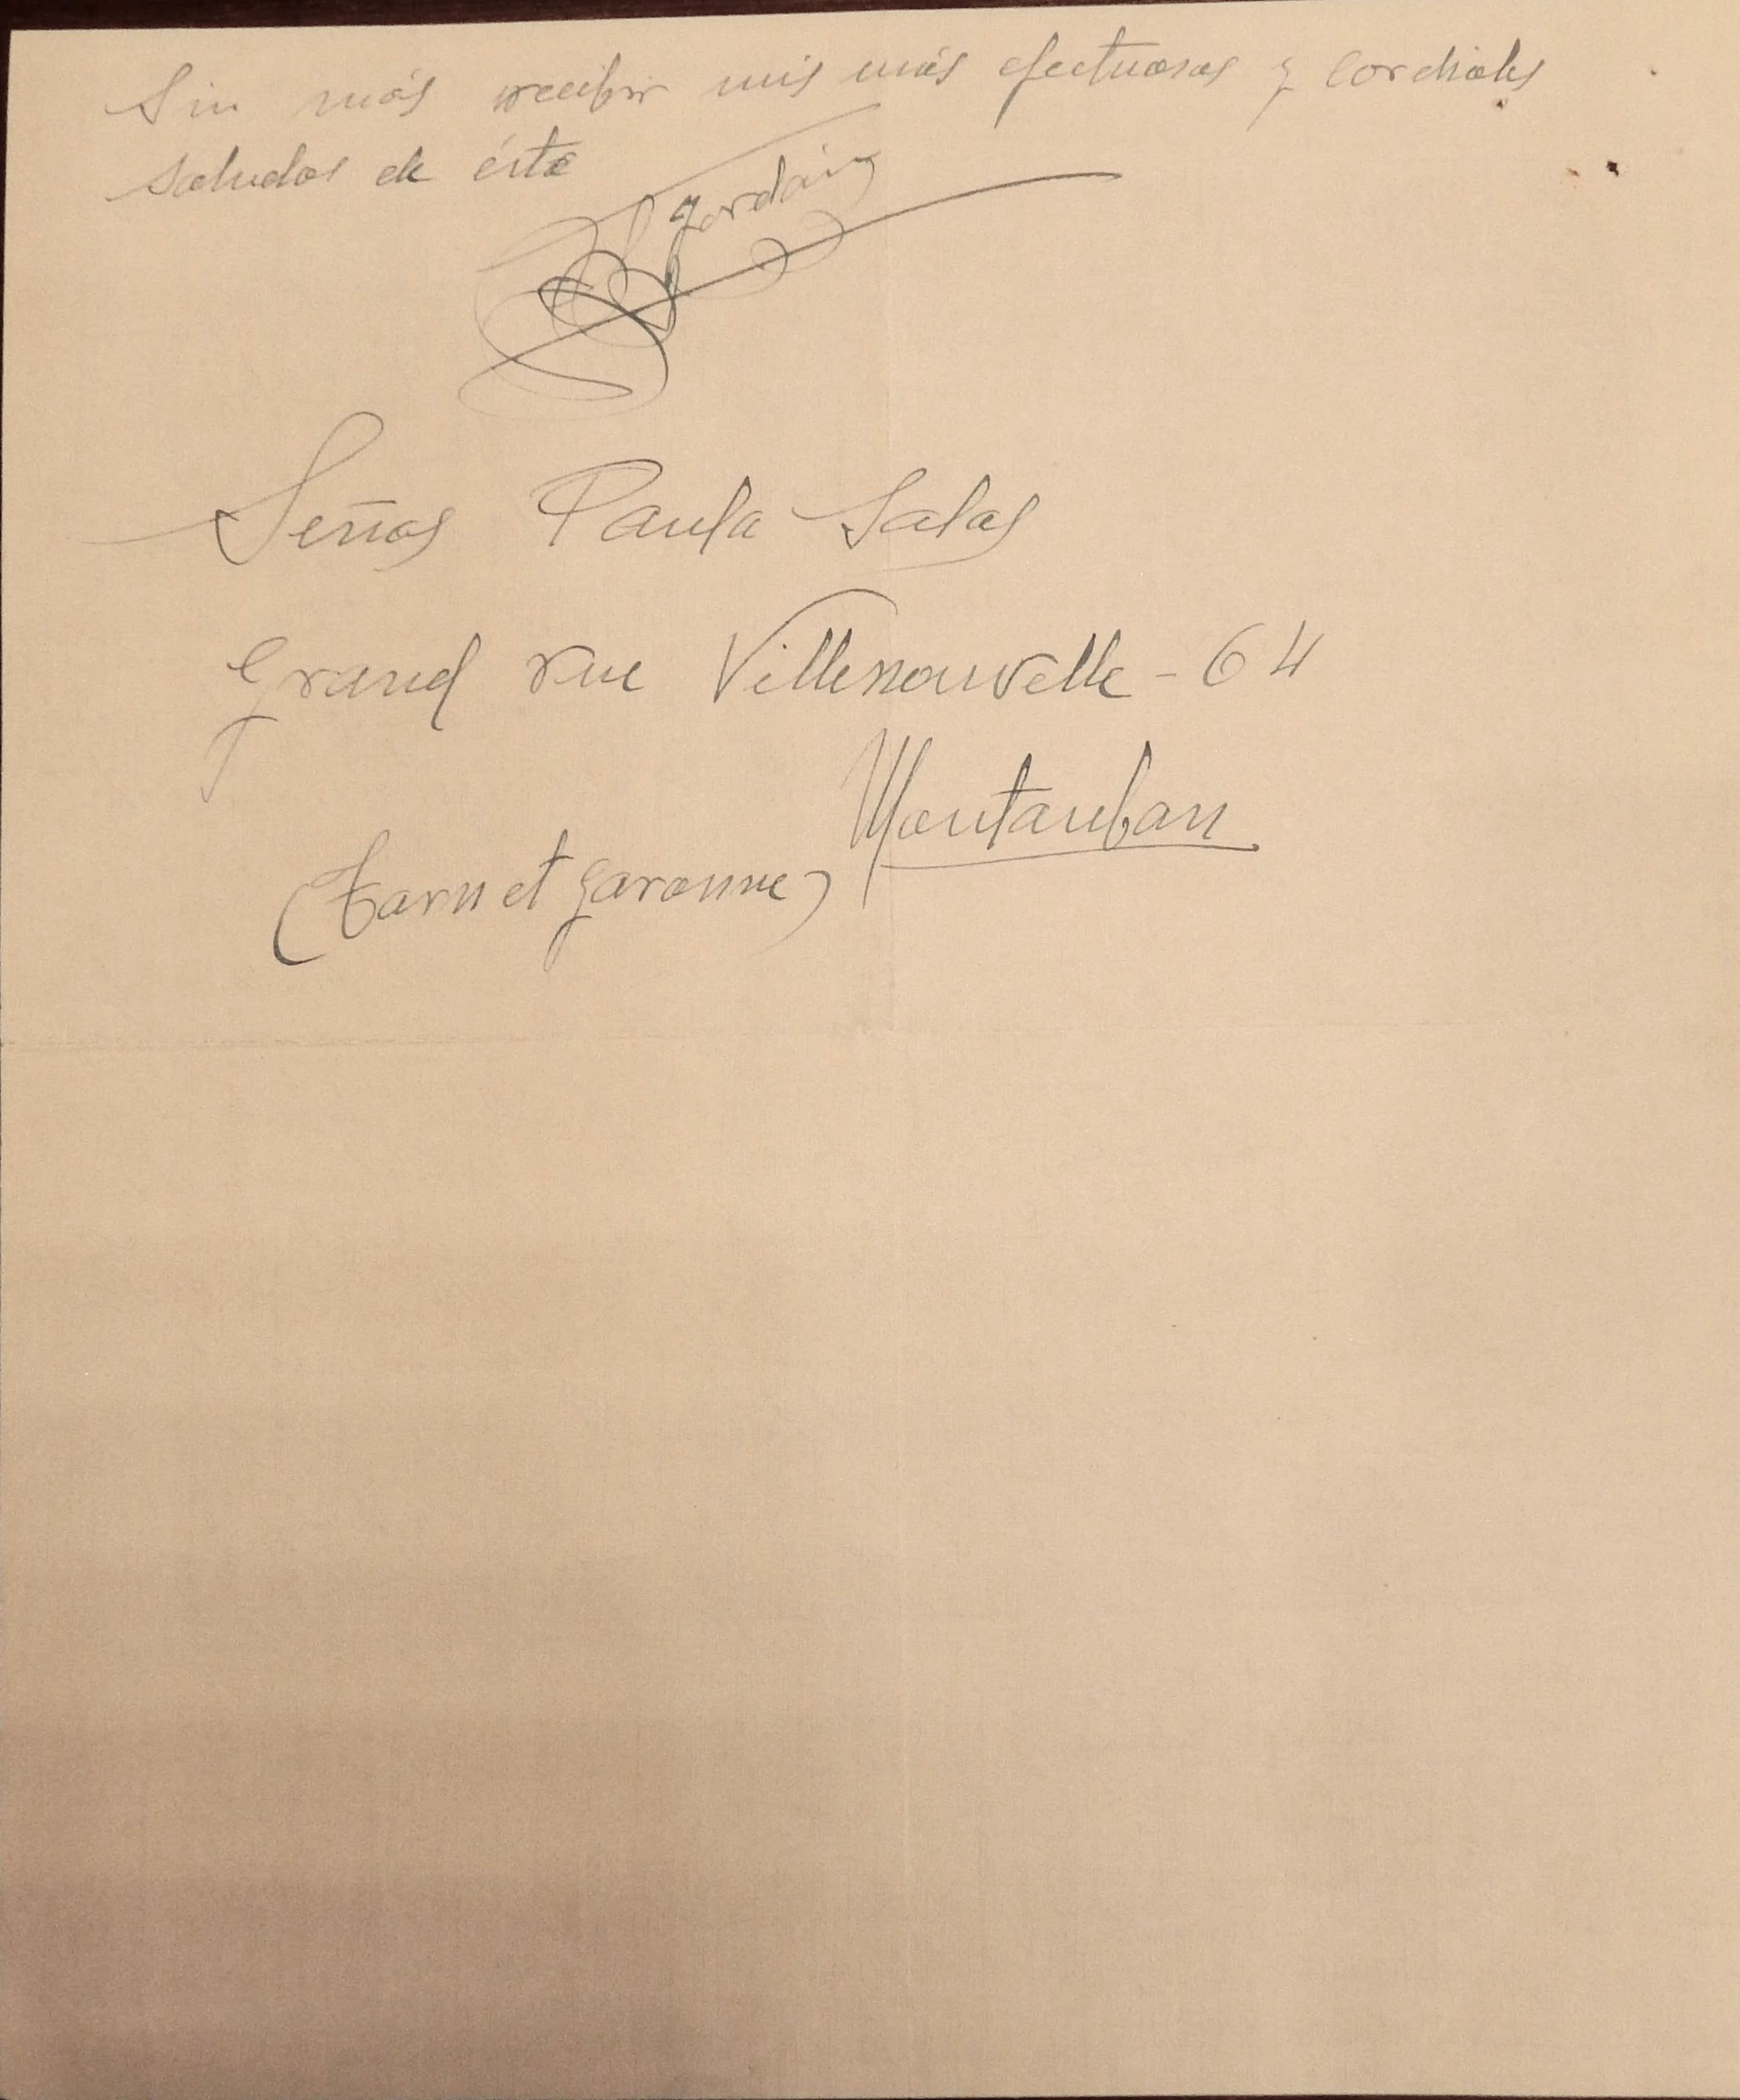 Sin más recibir mis más efectuosos y cordiales
saludos de éste
Jordán
Señas Paula Salas
Grand rue Villenouvelle - 64
Montauban
(Tarn et Garonne)